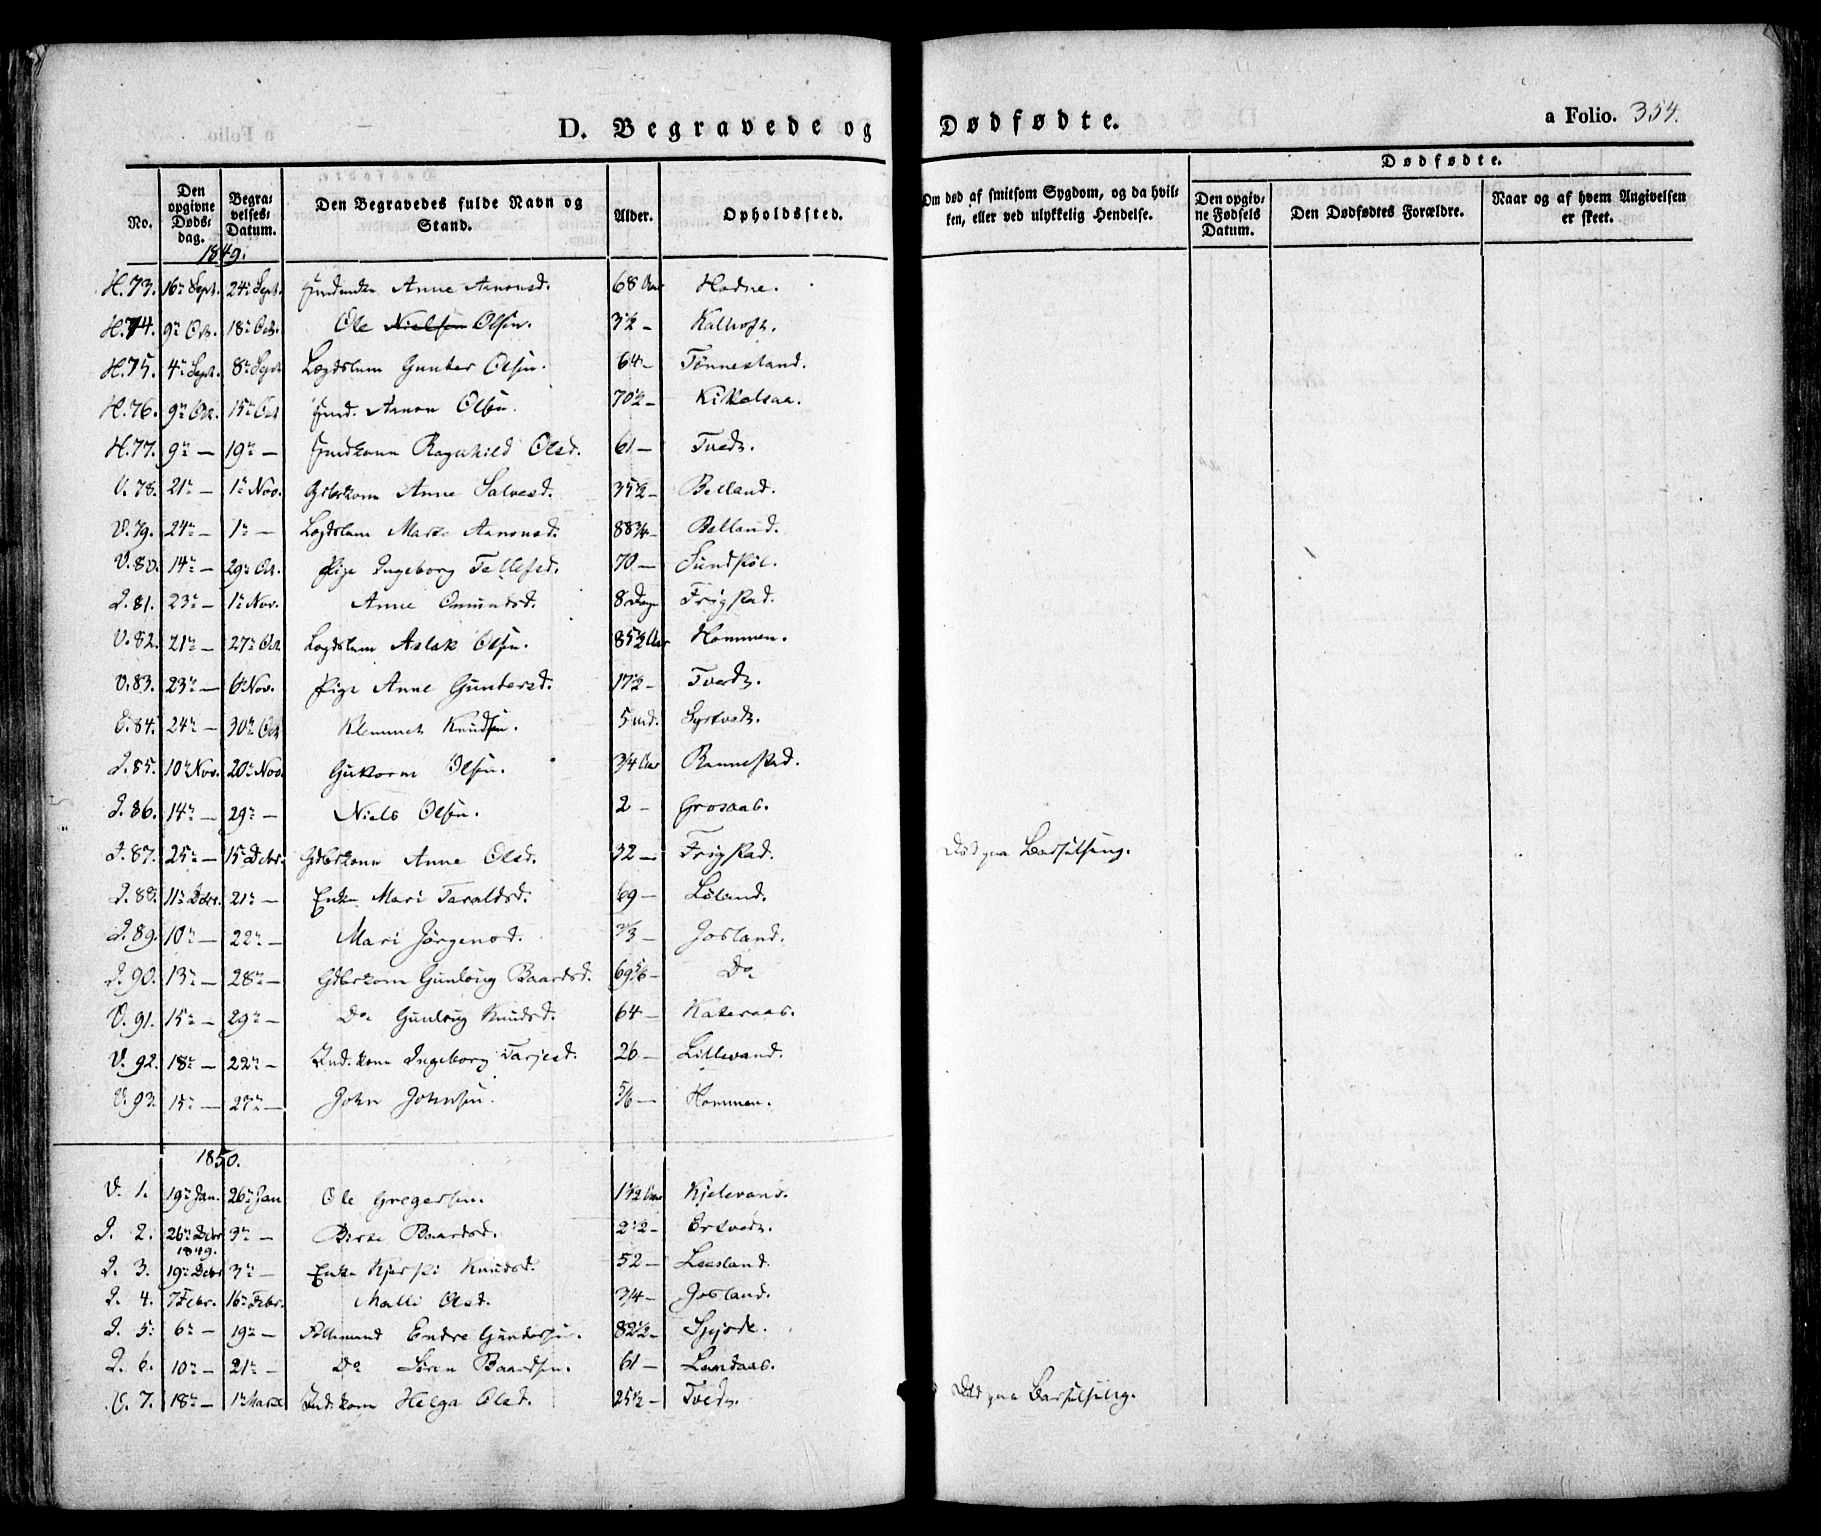 D. Begravede og Dødfødte.
a Folio. 354.
No.
Den opgivne Døds-dag.
Begra-velses-Datum.
Den Begravedes fulde Navn og Stand.
Alder.
Opholdssted.
Om død af smitsom Sygdom, og da hvil-ken, eller ved ulykkelig Hendelse.
Dødfødte.
Den opgiv-ne Fødsels Datum.
Den Dødfødtes Forældre.
Naar og af hvem Angivelsen er skeet.
1849.
H. 73. 16n Sept. 24n Sept. Anne Aanonsd. 68 Aar Hodne.
H. 74. 9n Oct. 18n Oct. Ole Nielsen Olsen. 3½ —
H. 75. 4n Sept. 8n Sept Lægdslem Gunder Olsen. 64 — Tønnesland.
H. 76. 9n Oct. 15n Oct Aanon Olsen. 70½ —
H. 77. 9n — 19n — Ragnhild Olsd. 61 — Tvedt.
V. 78. 21n — 1n Nov. Gdbrkone Anne Salvesd. 35½ — Belland.
V. 79. 24n — 1n — Lægdslem Marte Aanonsd. 88¾ — Belland.
V. 80. 14n — 29n Oct. Pige Ingeborg Tellefsd. 70 — Sundsköl.
I. 81. 23n — 1n Nov. Anne Omundsd. 8 Dage Frigstad.
V. 82. 21n — 27n Oct Lægdslem Aslak Olsen. 85½ Aar Hommen.
V. 83. 23n — 6n Nov. Pige Anne Gundersd. 17½ — Tvedt.
E. 84. 24n — 30n Oct Klemmet Knudsen. 5 Md.
I. 85. 10n Nov. 20n Nov. Guttorm Olsen. ¾ Aar Rannestad.
I. 86. 14n — 29n — Niels Olsen. 2 — Grosaas.
I. 87. 25n — 15n Decbr. Gdbrkone Anne Olsd. 32 — Frigstad. Död paa Barselseng.
I. 88. 11n Decbr. 21n — Enke Mari Taraldsd. 69 — Löland.
I. 89. 10n — 22n — Mari Jörgensd. ⅔ — Josland.
I. 90. 13n — 28n — Gdbrkone Gunlaug Baardsd. 69⅚ — Do
V. 91. 15n — 29n — Do Gunlaug Knudsd. 64 — Kateraas.
V. 92. 18n — 22n — Ind. kone Ingeborg Tarjesd. 26 — Lillevand.
V. 93. 15n — 27n — John Johnsen. ⅚ — Hommen.
1850.
V. 1. 19n Jan. 26n Jan Ole Gregersen. 1½ Aar Kjelevand.
I. 2. 26n Decbr 1849. 3n — Birte Baardsd. 2½ — Ertzvedt.
I. 3. 19n Decbr 3n — Enke Kjersti Knudsd. 52 — Lausland.
I. 4. 7 Febr. 16n Febr. Malli Olsd. ¾ — Josland.
I. 5. 6n — 19n — Endre Gundersen. 82½ —
I. 6. 10n — 21n — Do Sören Baardsen. 61 — Landaas.
V. 7. 18n — 1n Marts Ind. kone Helga Olsd. 25½ — Tvedt. Död paa Barselseng.